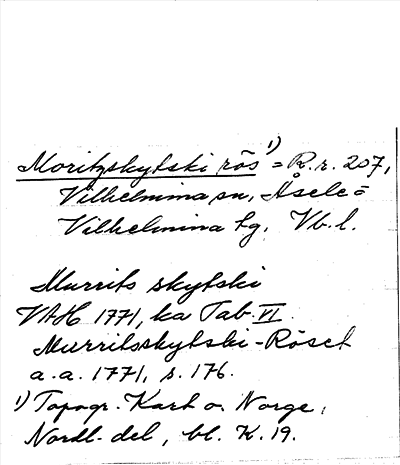 Moritzskytski rös ¹⁾ = R.r. 207,
Vilhelmina sn, Åsele=
Vilhelmina tg, Vb.l.
Murrits skytski
VAH 1771, ka Tab. VI
Murritsskytski-Röset
a.a. 1771, s. 176.
¹⁾ Topogr. Kart o. Norge,
Nordl. del, bl. K. 19.